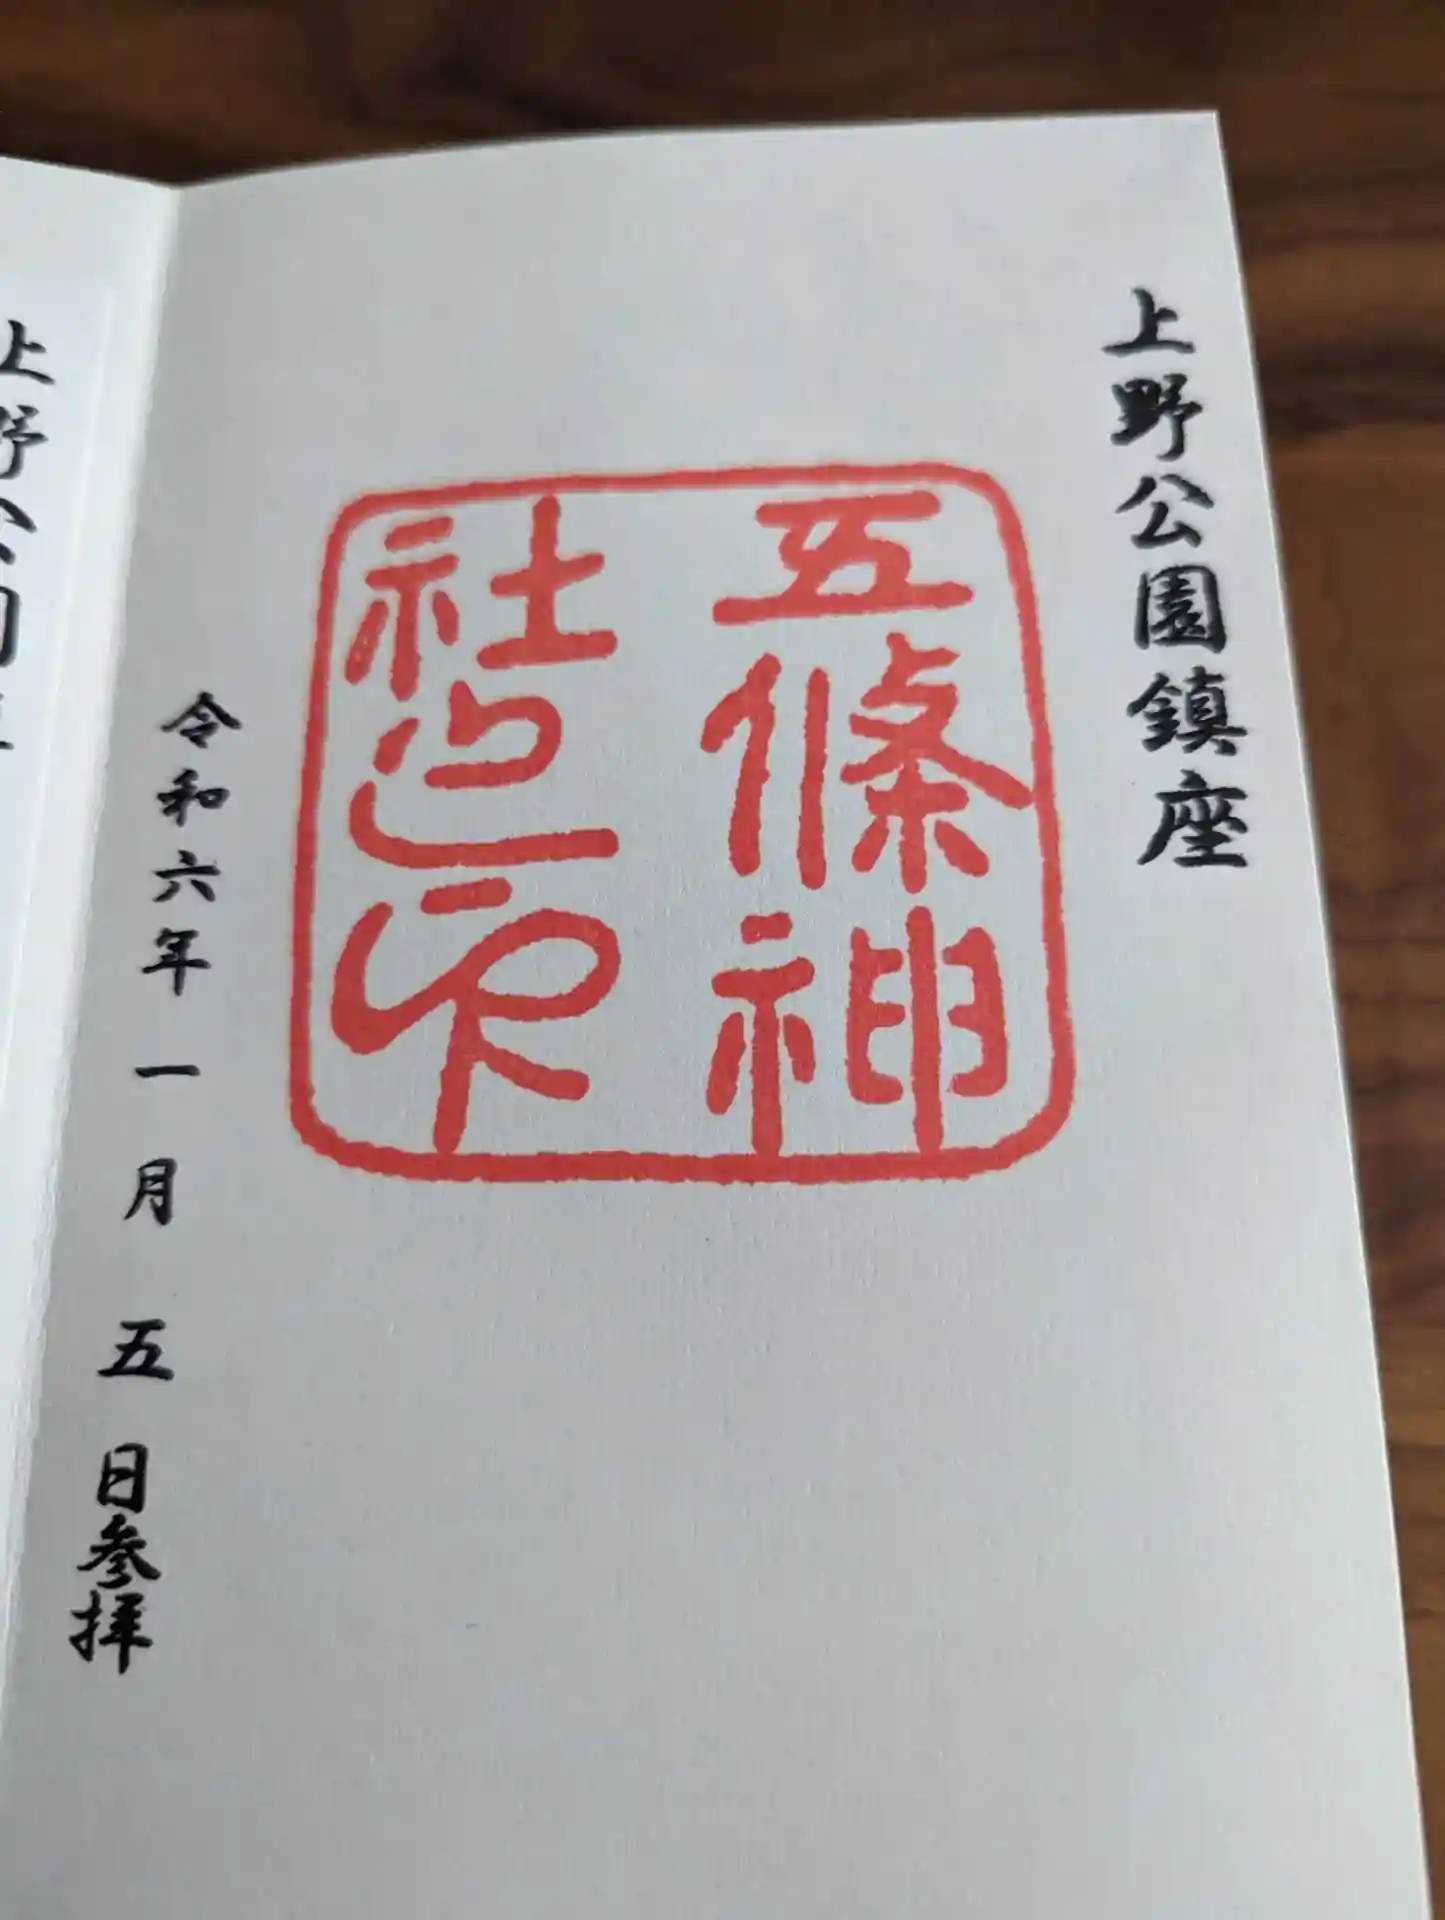 上野公園鎮座
五條神
社之印
令和六年一月五日参拝
上野公園